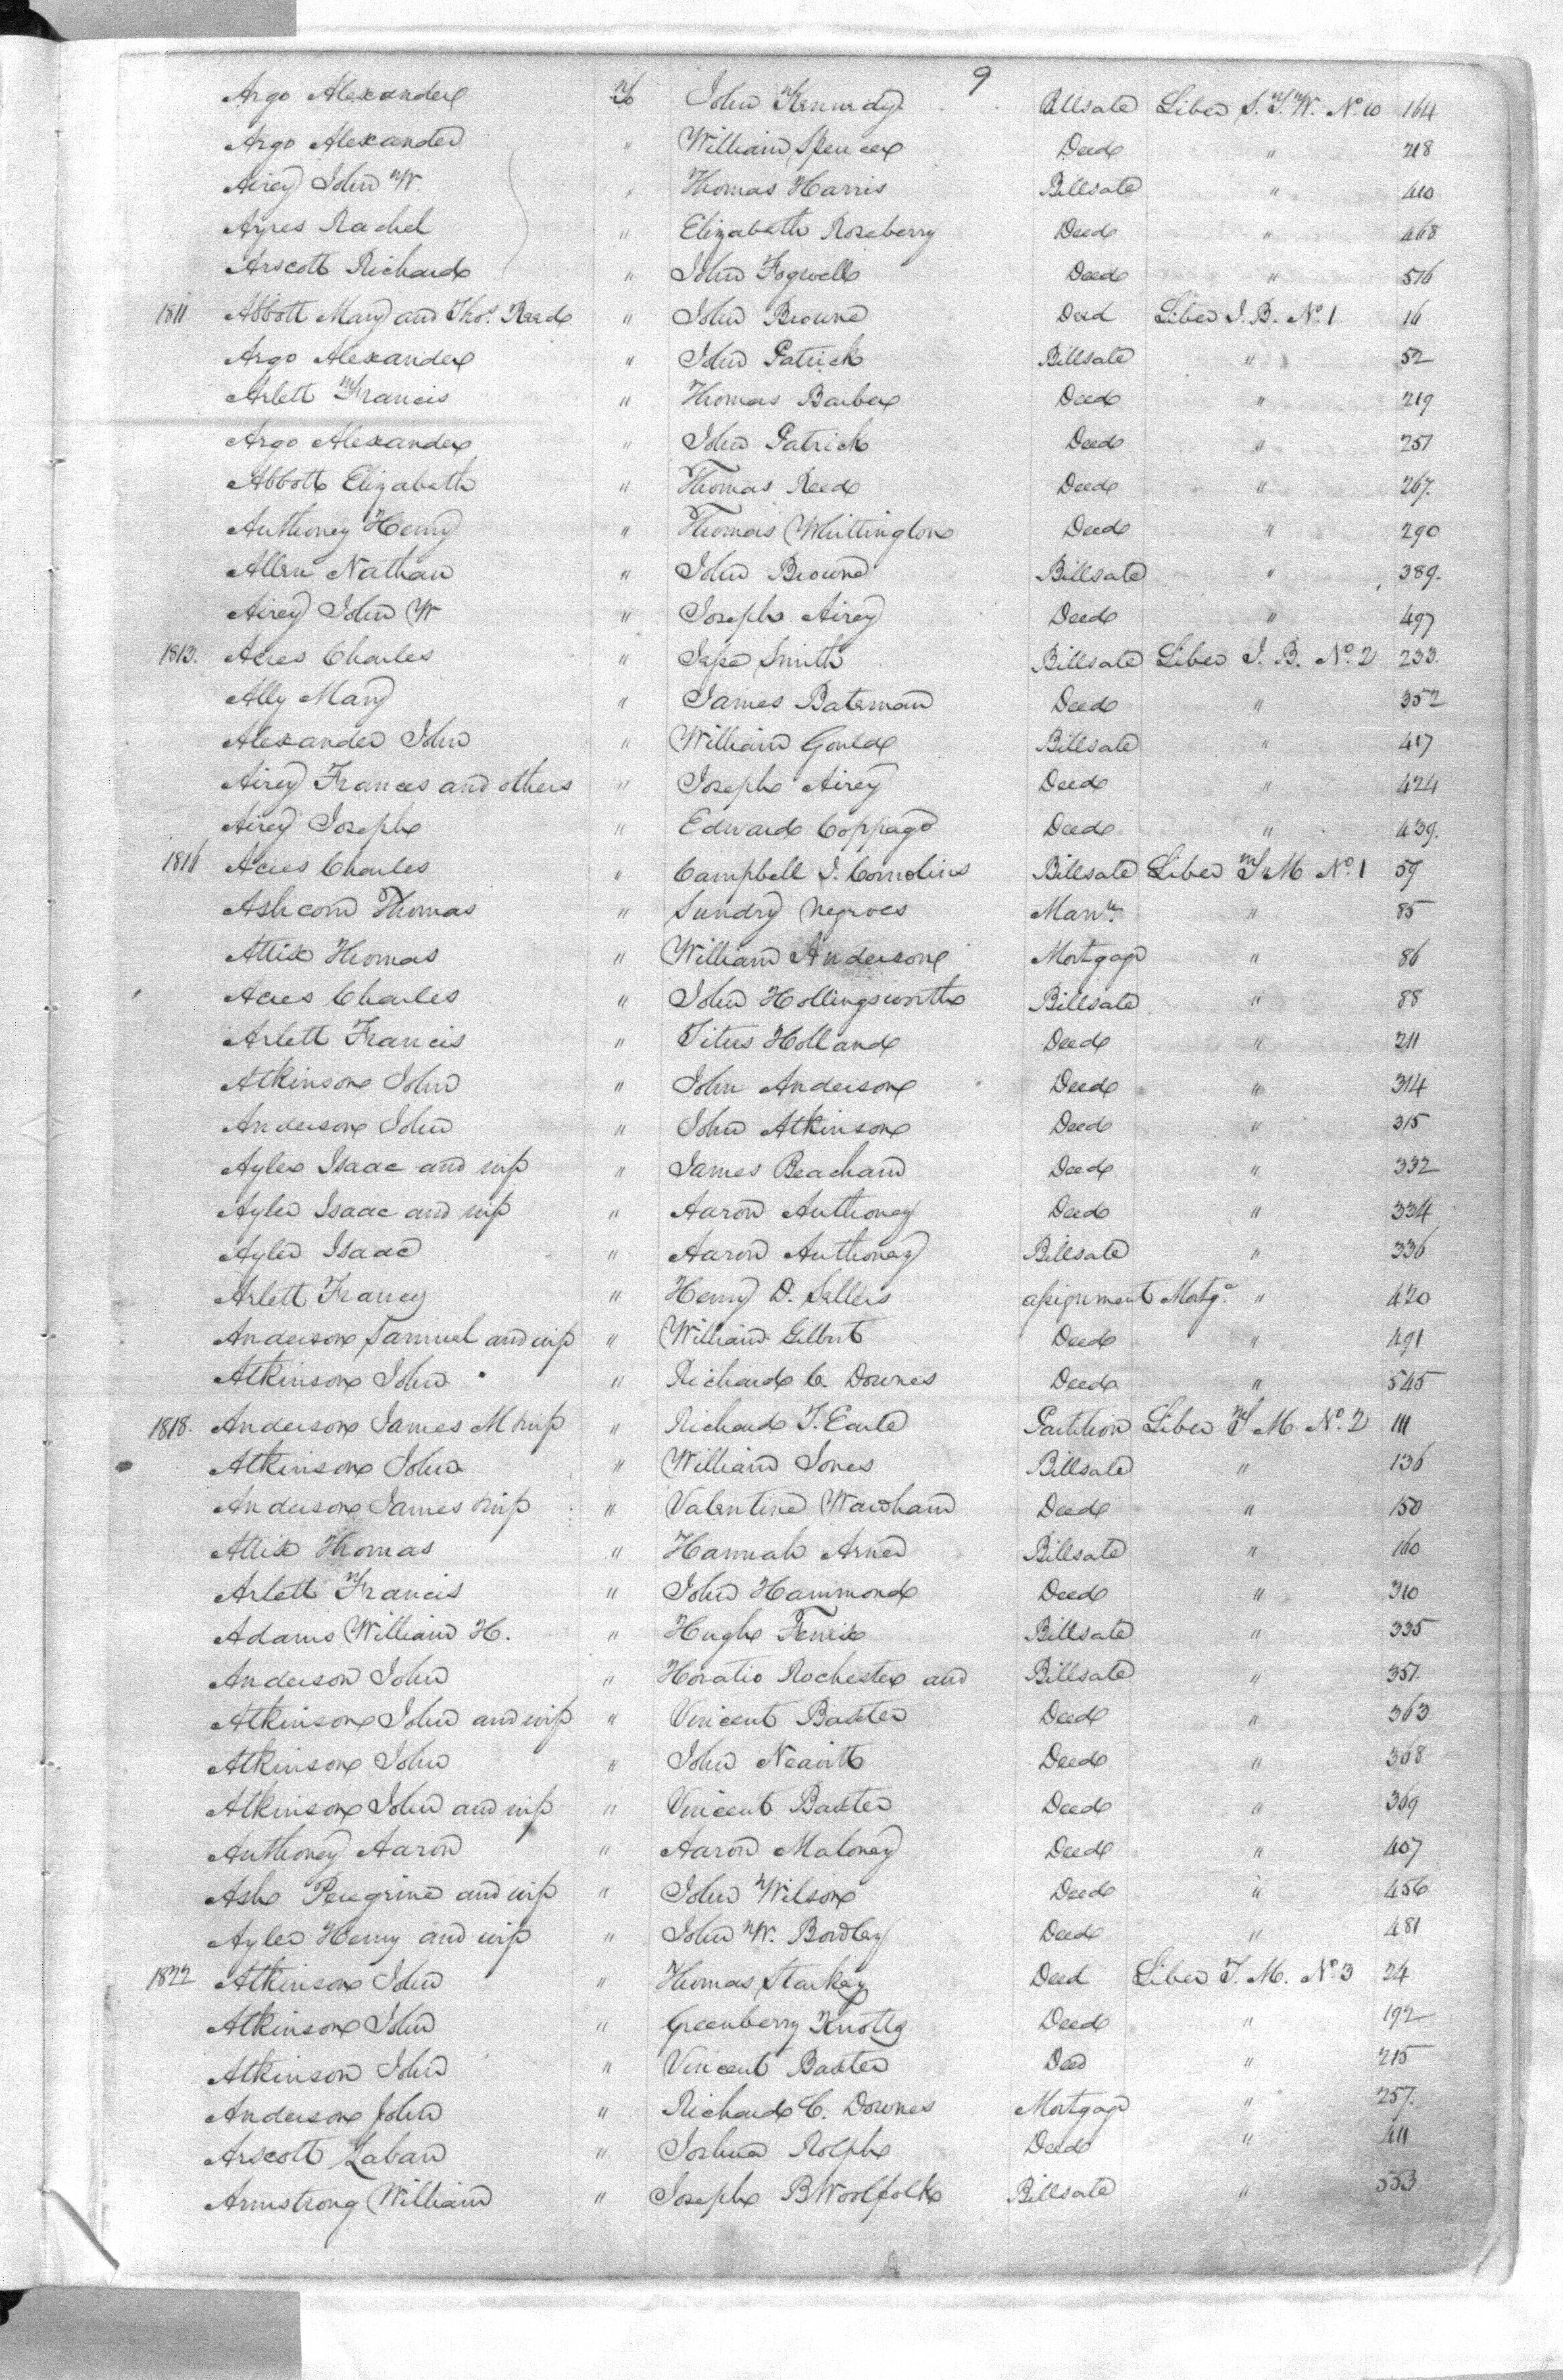 9
Argo Alexander to John Kennedy Billsale Liber S.T.W. No. 10 164
Argo Alexander " William Spencer Deed " 218
Airey John W. " Thomas Harris Billsale " 410
Ayres Rachel " Elizabeth Roseberry Deed " 468
Arscott Richard " John Fogwell Deed " 516
1811 Abbott Mary and Thos. Reed " John Browne Deed Liber J.B. No. 1 16
Argo Alexander " John Patrick Billsale " 52
Arlett Francis " Thomas Barber Deed " 219
Argo Alexander " John Patrick Deed " 251
Abbott Elizabeth " Thomas Reed Deed " 267.
Anthoney Henry " Thomas Whittington Deed " 290
Allen Nathan " John Browne Billsale " 389.
Airey John W " Joseph Airey Deed " 497
1813. Acres Charles " Jesse Smith Billsale Liber J.B. No. 2 233.
Ally Mary " James Bateman Deed " 352
Alexander John " William Gould Billsale " 417
Airey Frances and others " Joseph Airey Deed " 424
Airey Joseph " Edward Coppage Deed " 439.
1816 Acres Charles " Campbell J. Billsale Liber T M No. 1 59
Ashcom Thomas " Sundry Negroes Mann. " 85
Attix Thomas " William Anderson Mortgage " 86
Acres Charles " John Hollingsworth Billsale " 88
Arlett Francis " Titus Holland Deed " 211
Atkinson John " John Anderson Deed " 314
Anderson John " John Atkinson Deed " 315
Ayler Isaac and wife " James Beacham Deed " 332
Ayler Isaac and wife " Aaron Anthoney Deed " 334
Ayler Isaac " Aaron Anthoney Billsale " 336
Arlett Francy " Henry D. Sellers assignment Mortg.e " 420
Anderson Samuel and wife " William Gilbert Deed " 491
Atkinson John " Richard C. Downes Deed " 545
1818. Anderson James M wife " Richard T. Earle Partition Liber T M. No. 2 111
Atkinson John " William Jones Billsale " 136
Anderson James wife " Valentine Wawham Deed " 150
Attix Thomas " Hannah Billsale " 160
Arlett Francis " John Hammond Deed " 310
Adams William H. " Hugh Fenix Billsale " 335
Anderson John " Horatio Rochester and Billsale " 357
Atkinson John and wife " Vincent Baxter Deed " 363
Atkinson John " John Neavitt Deed " 368
Atkinson John and wife " Vincent Baxter Deed " 369
Anthoney Aaron " Aaron Maloney Deed " 407
Ash Peregrine and wife " John Wilson Deed " 456
Ayler Henry and wife " John W. Bordley Deed " 481
1822 Atkinson John " Thomas Starkey Deed Liber T.M. No. 3 24
Atkinson John " Greenberry Knotts Deed " 192
Atkinson John " Vincent Baxter Deed " 215
Anderson John " Richard C. Downes Mortgage " 257.
Arscott Laban " Joshua Rolph Deed " 411
Armstrong William " Joseph B Woolfolk Billsale " 553